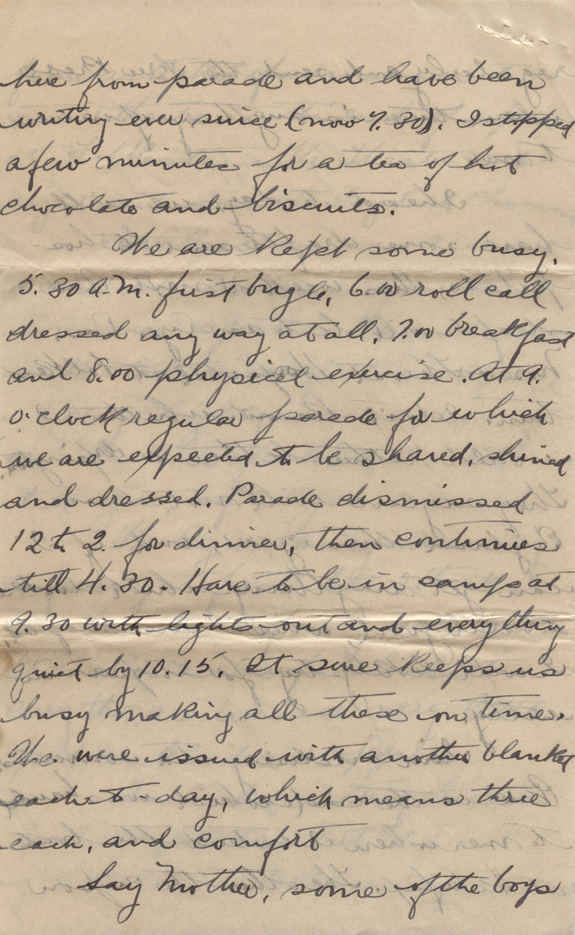 here from parade and have been
writing ever since (now 7.30). I stopped
a few minutes for a tea of hot
chocolate and biscuits.
We are kept some busy.
5.30 A.M. first bugle, 6.00 roll call
dressed any way at all, 7.00 breakfast
and 8.00 physical exercise. At 9.
o'clock regular parade for which
we are expected to be shaved, shined
and dressed. Parade dismissed
12 to 2. for dinner, then continues
till 4.30. Have to be in camp at
9.30 with lights out and everything
quiet by 10.15. It sure keeps us
busy making all these on time.
We were issued with another blanket
each to-day, which means three
each, and comfort
Say Mother, some of the boys